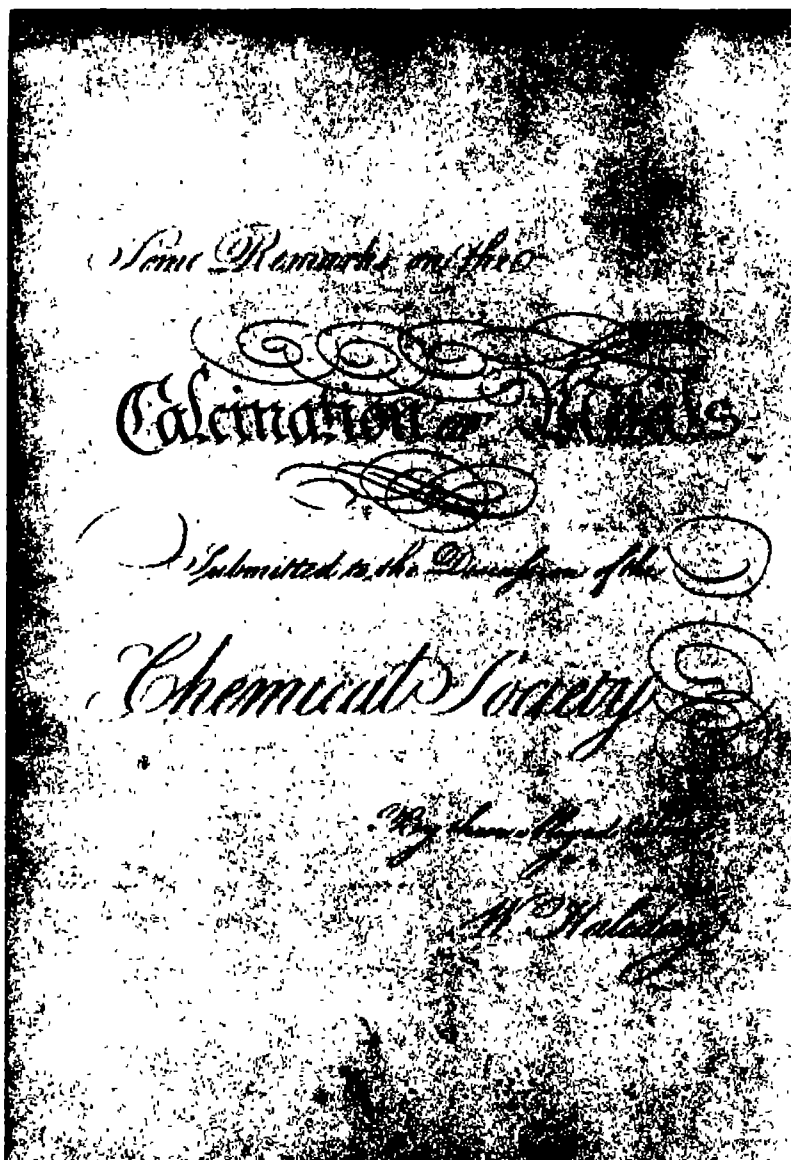 Some Remarks on the
Calcination of Metals
Submitted to the Discussion of the
Chemical Society
By their obliged
W Haliday